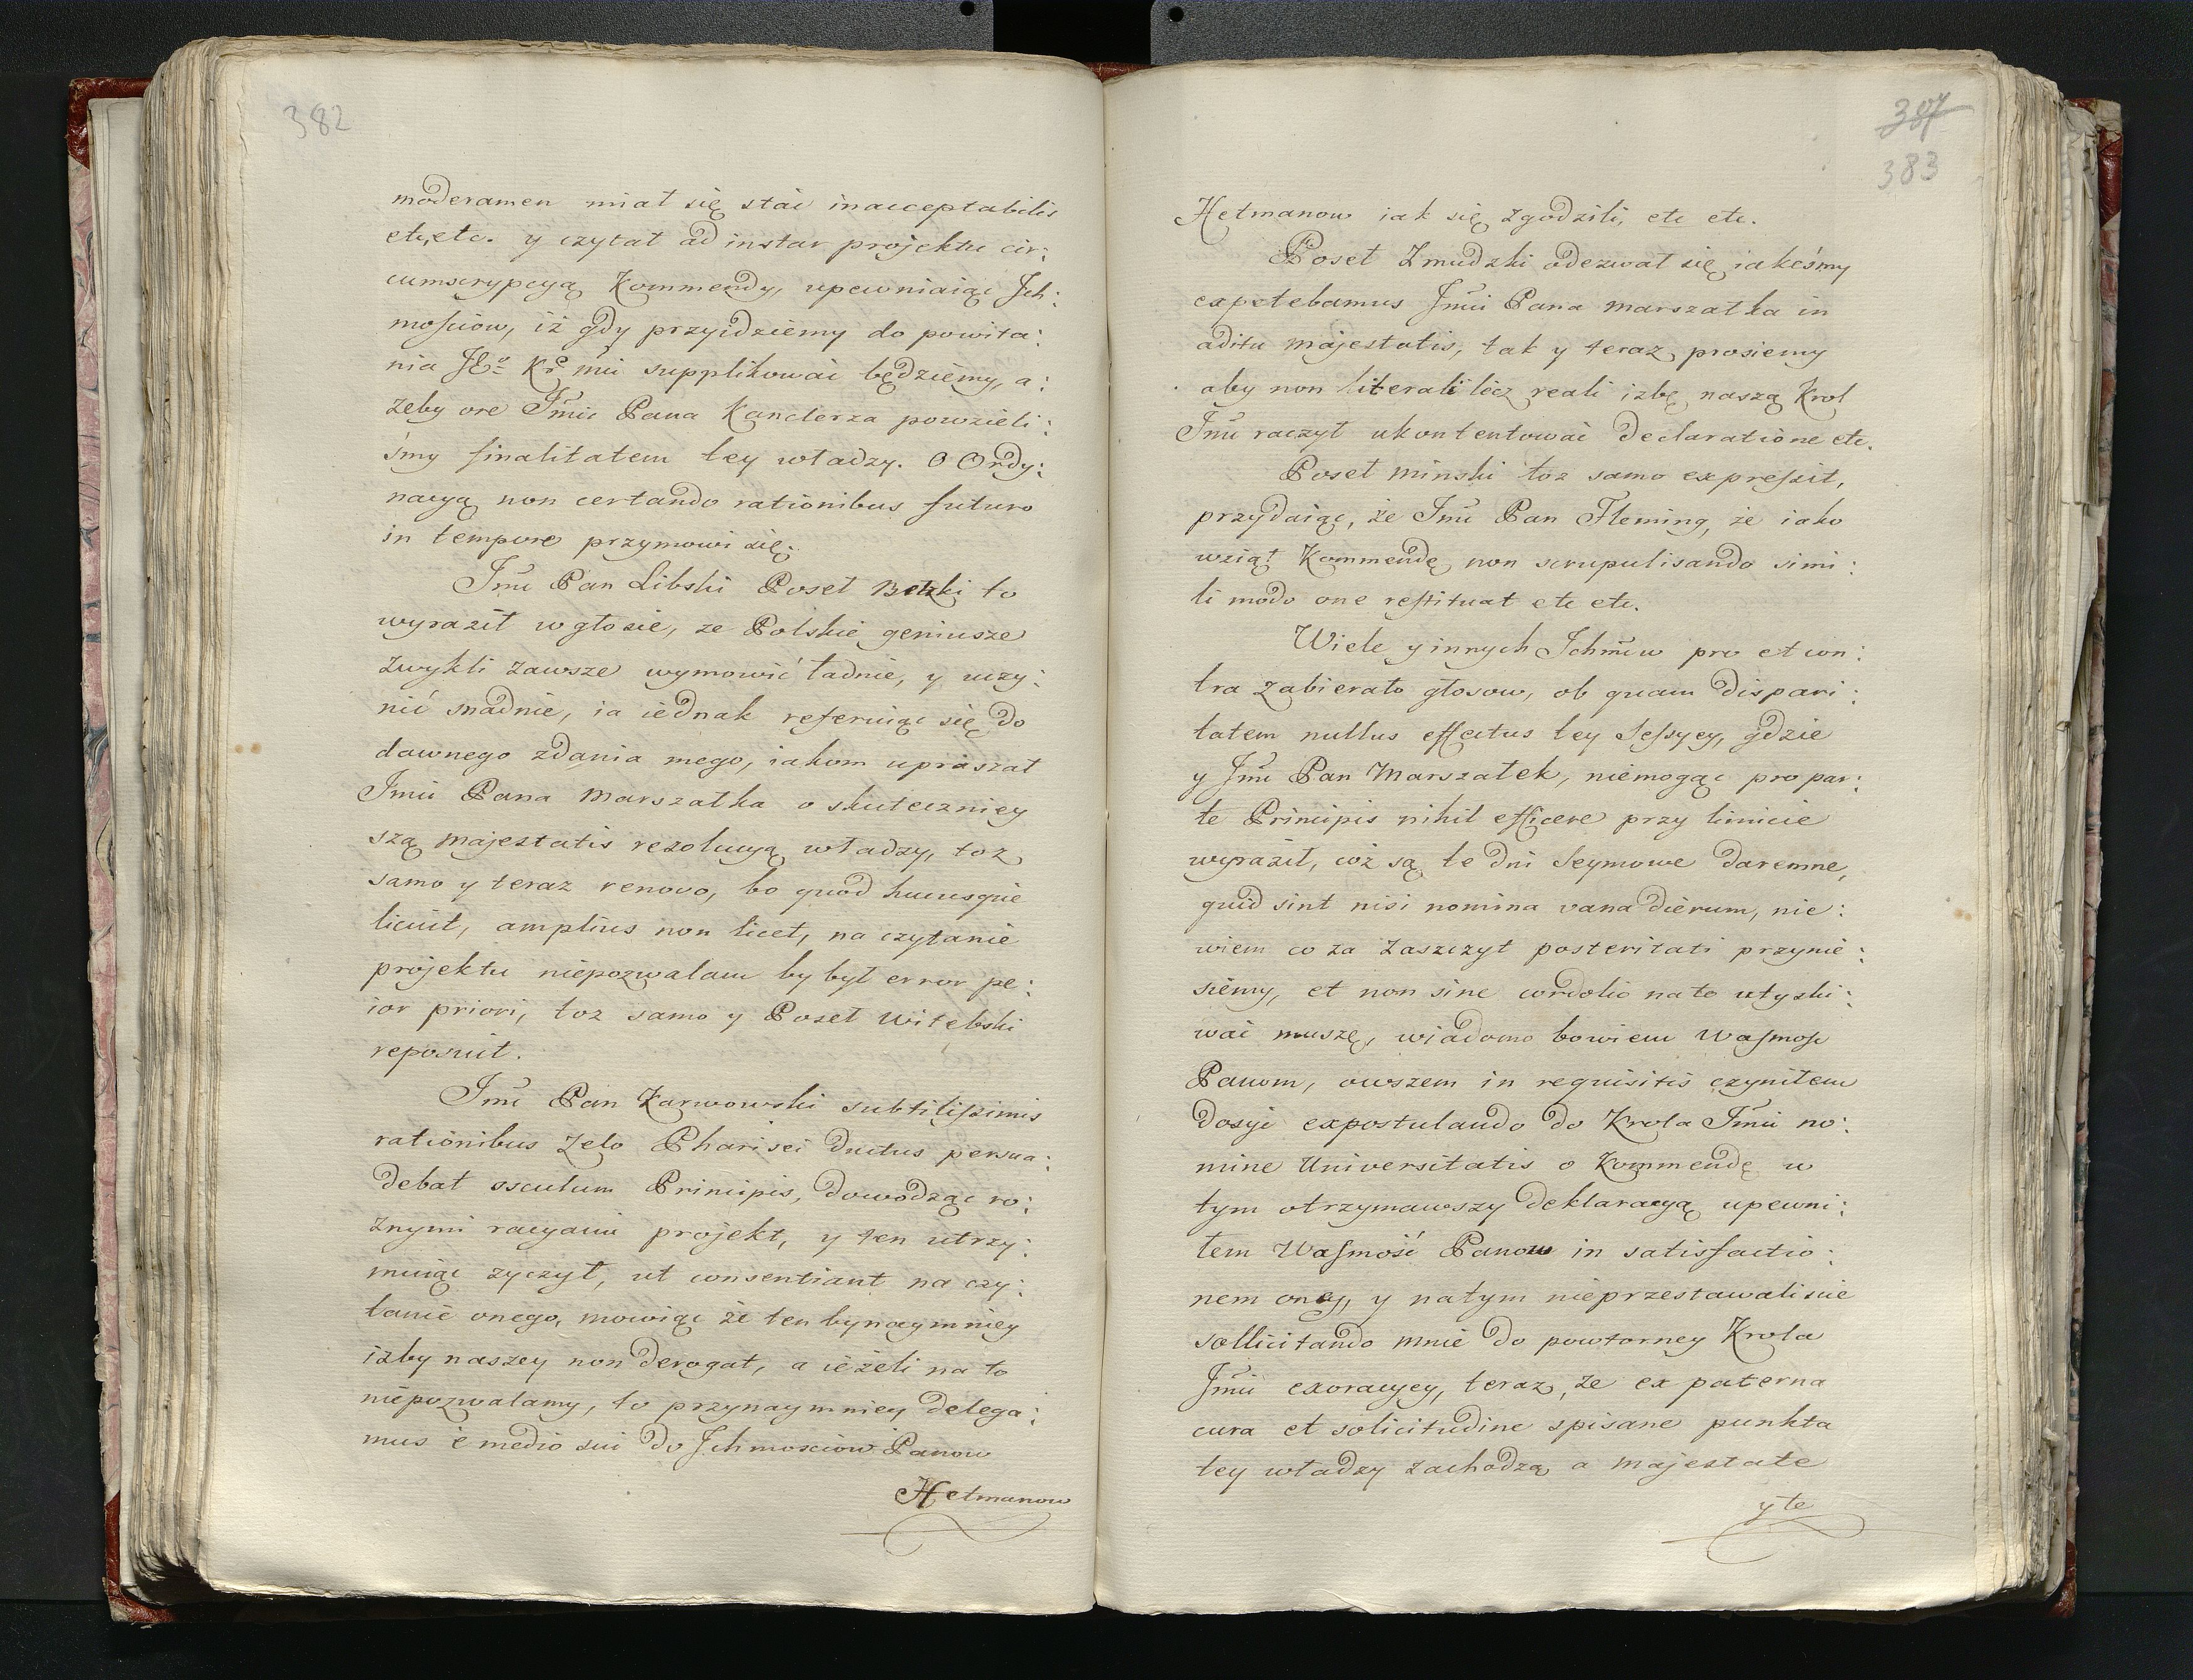 382
moderamen miał się stać inacceptabilis
etc, etc. y czytał ad instar projektu cir:
cumscrypcyą Kommendy, upewniaiąc Ich:
mościow, iż gdy przyidziemy do powita:
nia JEo Kr mći supplikować będziemy, a:
żeby ore Jmći Pana Kanclerza powzieli:
śmy finalitatem tey władzy. O Ordy:
nacyą non certando rationibus futuro
in tempore przymowi się.
Jmć Pan Libski Poseł Bełzki to
wyraził w głosie, ze Polskie geniusze
zwykli zawsze wymowić ładnie, y uczy:
nić snadnie, ia iednak referuiąc się do
dawnego zdania mego, iakom upraszał
Jmći Pana Marszałka o skuteczniey
szą Majestatis rezolucyą władzy, toż
samo y teraz renovo, bo quod hucusque
licuit, amplius non licet, na czytanie
projektu niepozwalam by był error pe:
ior priori, toż samo y Poseł Witebski
reposuit.
Jmć Pan Karwowski subtilissimis
rationibus zelo Pharisei ductus persua:
debat osculum Principis, dowodząc ro:
żnymi racyami projekt, y ten utrzy:
muiąc zyczył, ut consentiant na czy:
tanie onego, mowiąc że ten bynaymniey
izby naszey non derogat, a ieżeli na to
niepozwalamy, to przynaymniey delega:
mus e medio sui do Ichmościow Panow
Hetmanow
387
383
Hetmanow iak się zgodzili, etc etc.
Poseł Zmudzki odezwał się iakeśmy
expetebamus Jmći Pana Marszałka in
aditu Majestatis, tak y teraz prosiemy
aby non literali lecz reali izbę naszą Krol
Jmć raczył ukontentować declaratione etc.
Poseł Minski toż samo expressit,
przydaiąc, że Jmć Pan Fleming, że iako
wziął Kommendę non scrupulisando simi:
li modo one restituat etc etc.
Wiele y innych Ichmćiw pro et con:
tra zabierało głosow, ob quam dispari:
tatem nullus effectus tey Sessyey, gdzie
y Jmć Pan Marszałek, niemogąc pro par:
te Principis nihil efficere przy limicie
wyraził, coż są te dni Seymowe daremne,
quid sint nisi nomina vana dierum, nie:
wiem co za zaszczyt posteritati przynie:
siemy, et non sine cordolio na to utyski:
wać muszę, wiadomo bowiem Wasmość
Panom, owszem in requisitis czyniłem
dosyć expostulando do Krola Jmći no:
mine Universitatis o Kommendę w
tym otrzymawszy deklaracyą upewni:
łem Wasmość Panow in satisfactio:
nem oney, y natym nieprzestawaliscie
sollicitando mnie do powtorney Krola
Jmći exoracyey, teraz, że ex paterna
cura et solicitudine spisane punkta
tey władzy zachodzą a Majestate
y te